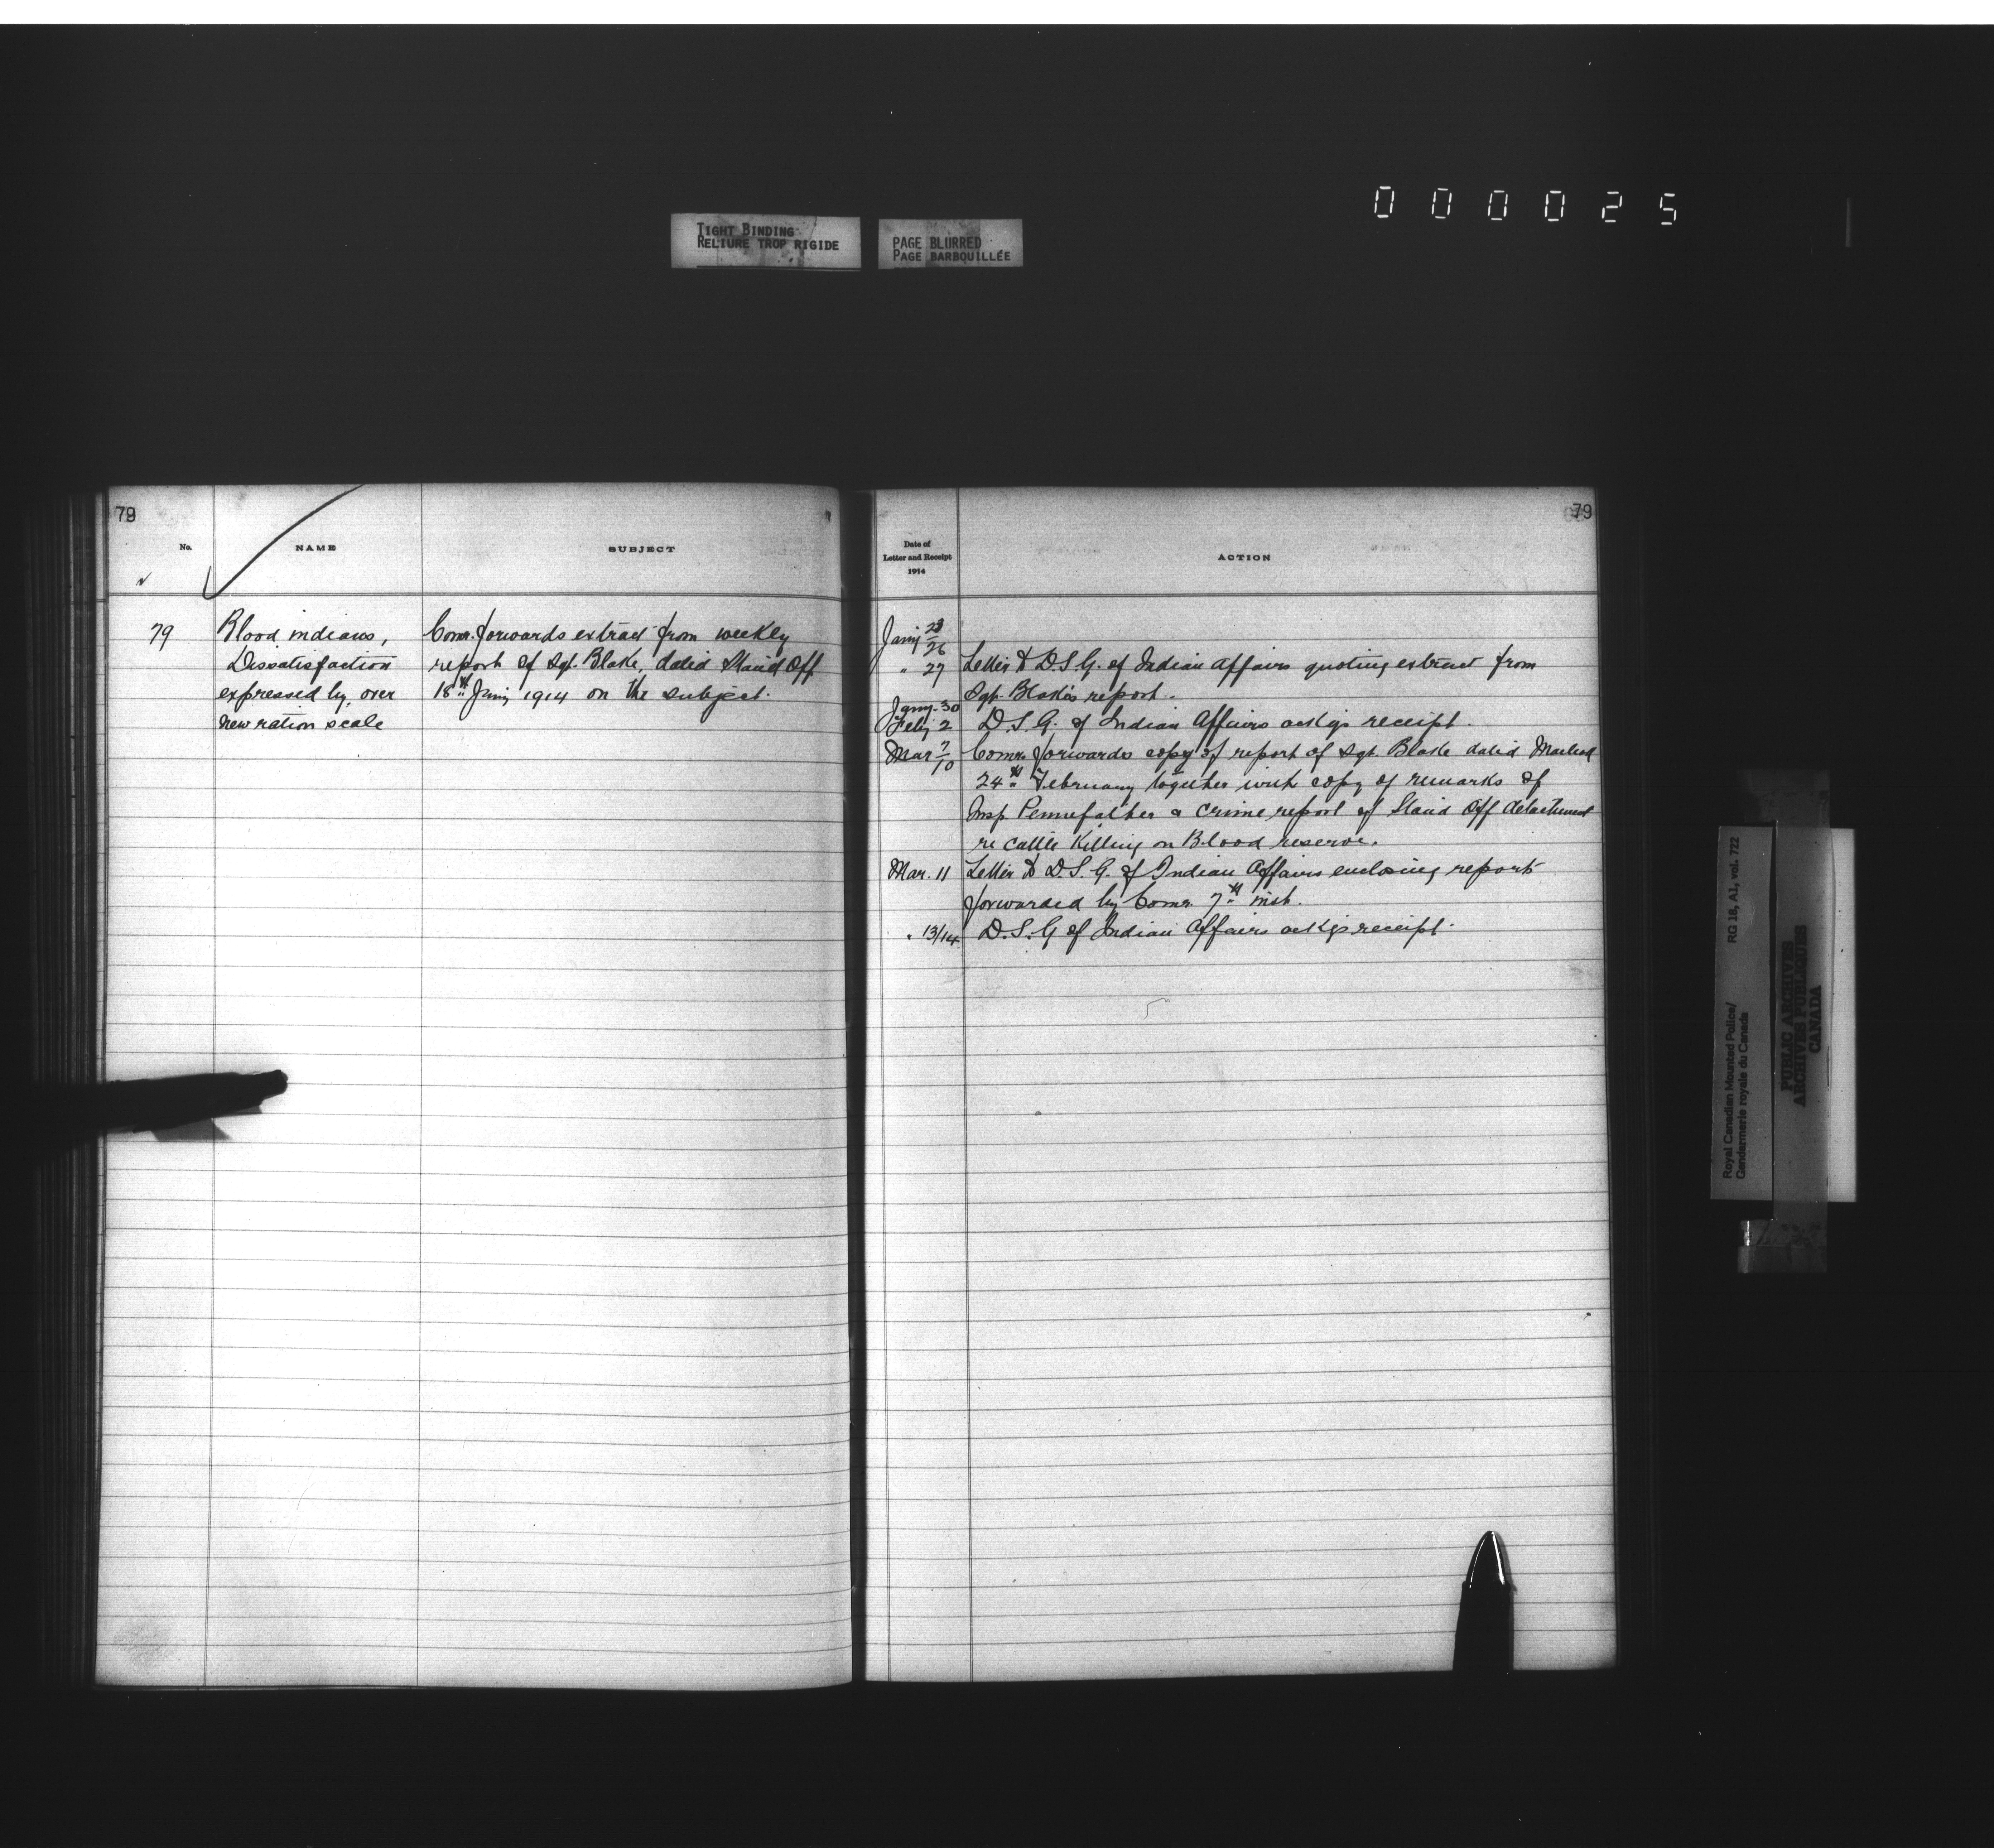 0 0 0 0 2 5
TIGHT BINDING
RELIURE TROP RIGIDE
PAGE BLURRED
PAGE BARBOUILLÉE
79
No.
NAME
SUBJECT
79
Blood indians,
Dissatisfaction
expressed by, over
new ration scale
Comr. forwards extract from weekly
report of Sgt. Blake, dated Stand Off
18th Jany 1914 on the subject.
79
Date of
Letter and Receipt
1914
ACTION
Jany 23/26
" 27 Letter to D.S.G. of Indian Affairs quoting extract from
Sgt. Blake's report.
Jany. 30
Feby 2 D.S.G. of Indian Affairs ackgs receipt.
Mar 7/10 Comr. forwards copy of report of Sgt. Blake dated Macleod
24th February together with copy of remarks of
Insp. Pennefather & crime report of Stand Off detachment
re cattle killing on Blood reserve.
Mar. 11 Letter to D.S.G. of Indian Affairs enclosing report
forwarded by Comr. 7th inst.
" 13/14 D.S.G of Indian Affairs ackgs receipt.
RG 18, A1, vol. 722
Royal Canadian Mounted Police/
Gendarmerie royale du Canada
PUBLIC ARCHIVES
ARCHIVES PUBLIQUES
CANADA